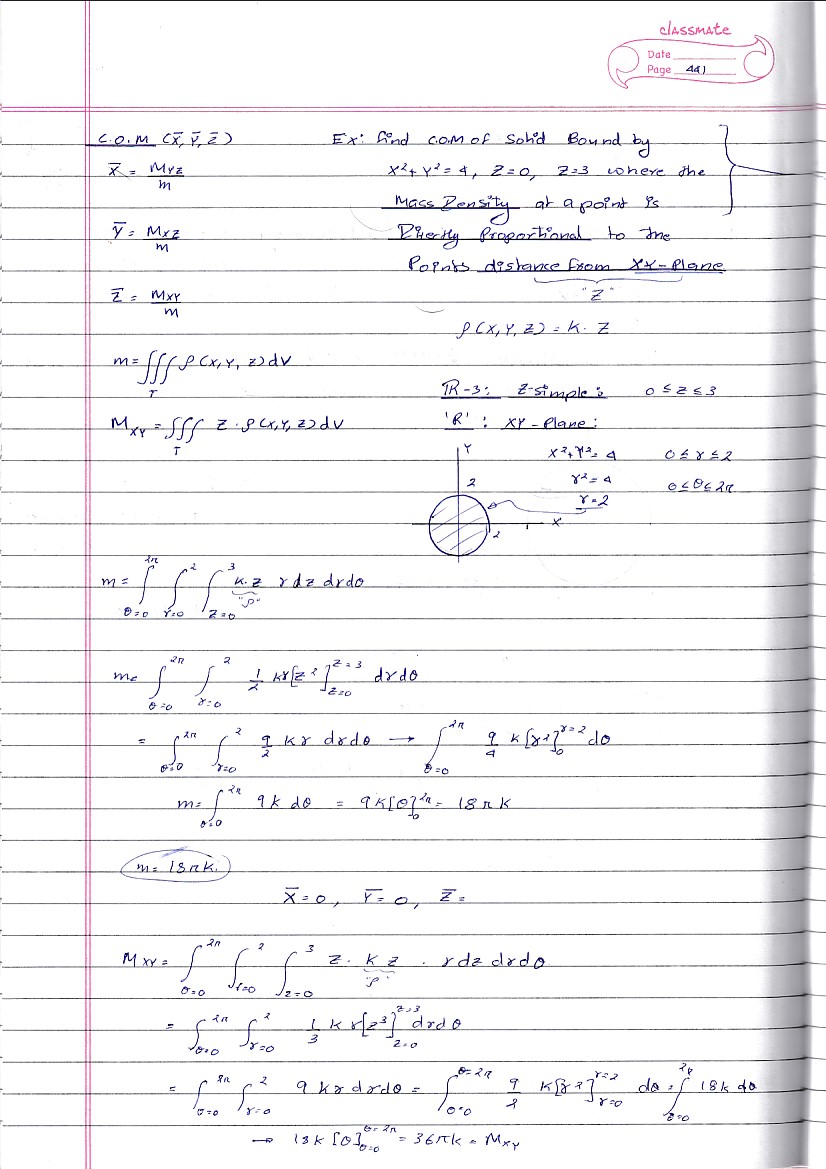 classmate
Date
Page 441
C.O.M (X̅, Y̅, Z̅) Ex: find C.O.M of Solid Bound by
X̅ = Myz/m X²+Y²=4, Z=0, Z=3 where the
Mass Density at a point is
Y̅ = Mxz/m Directly Proportional to the
Points distance from XY-Plane
Z̅ = Mxy/m "Z"
ρ(X,Y,Z) = K. Z
m = ∭_T ρ(X,Y,Z) dV
R-3: Z-simple: 0 ≤ Z ≤ 3
M_XY = ∭_T Z · ρ(X,Y,Z) dV 'R' : XY-Plane:
Y X²+Y²=4 0 ≤ r ≤ 2
2 r²=4 0 ≤ θ ≤ 2π
r=2
X
2
m = ∫_{θ=0}^{2π} ∫_{r=0}^{2} ∫_{Z=0}^{3} K.Z r dz dr dθ
"ρ"
m = ∫_{θ=0}^{2π} ∫_{r=0}^{2} 1/2 Kr[Z²]_{Z=0}^{Z=3} dr dθ
= ∫_{θ=0}^{2π} ∫_{r=0}^{2} 9/2 Kr dr dθ → ∫_{θ=0}^{2π} 9/4 K[r²]_{0}^{r=2} dθ
m = ∫_{θ=0}^{2π} 9K dθ = 9K[θ]_{0}^{2π} = 18πK
m = 18πK.
X̅ = 0, Y̅ = 0, Z̅ =
M XY = ∫_{θ=0}^{2π} ∫_{r=0}^{2} ∫_{z=0}^{3} Z. K Z . r dz dr dθ
"ρ"
= ∫_{θ=0}^{2π} ∫_{r=0}^{2} 1/3 K r[z³]_{z=0}^{z=3} dr dθ
= ∫_{θ=0}^{2π} ∫_{r=0}^{2} 9 Kr dr dθ = ∫_{θ=0}^{θ=2π} 9/2 K[r²]_{r=0}^{r=2} dθ = ∫_{θ=0}^{2π} 18K dθ
→ 18K [θ]_{θ=0}^{θ=2π} = 36πK = M_XY